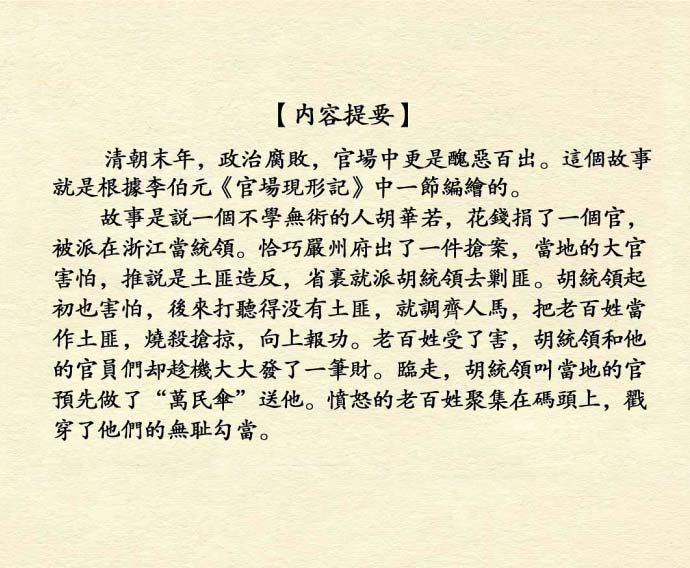 【内容提要】
清朝末年，政治腐敗，官場中更是醜惡百出。這個故事
就是根據李伯元《官場現形記》中一節編繪的。
故事是説一個不學無術的人胡華若，花錢捐了一個官，
被派在浙江當統領。恰巧嚴州府出了一件搶案，當地的大官
害怕，推説是土匪造反，省裏就派胡統領去剿匪。胡統領起
初也害怕，後來打聽得没有土匪，就調齊人馬，把老百姓當
作土匪，燒殺搶掠，向上報功。老百姓受了害，胡統領和他
的官員們却趁機大大發了一筆財。臨走，胡統領叫當地的官
預先做了“萬民傘”送他。憤怒的老百姓聚集在碼頭上，戳
穿了他們的無耻勾當。